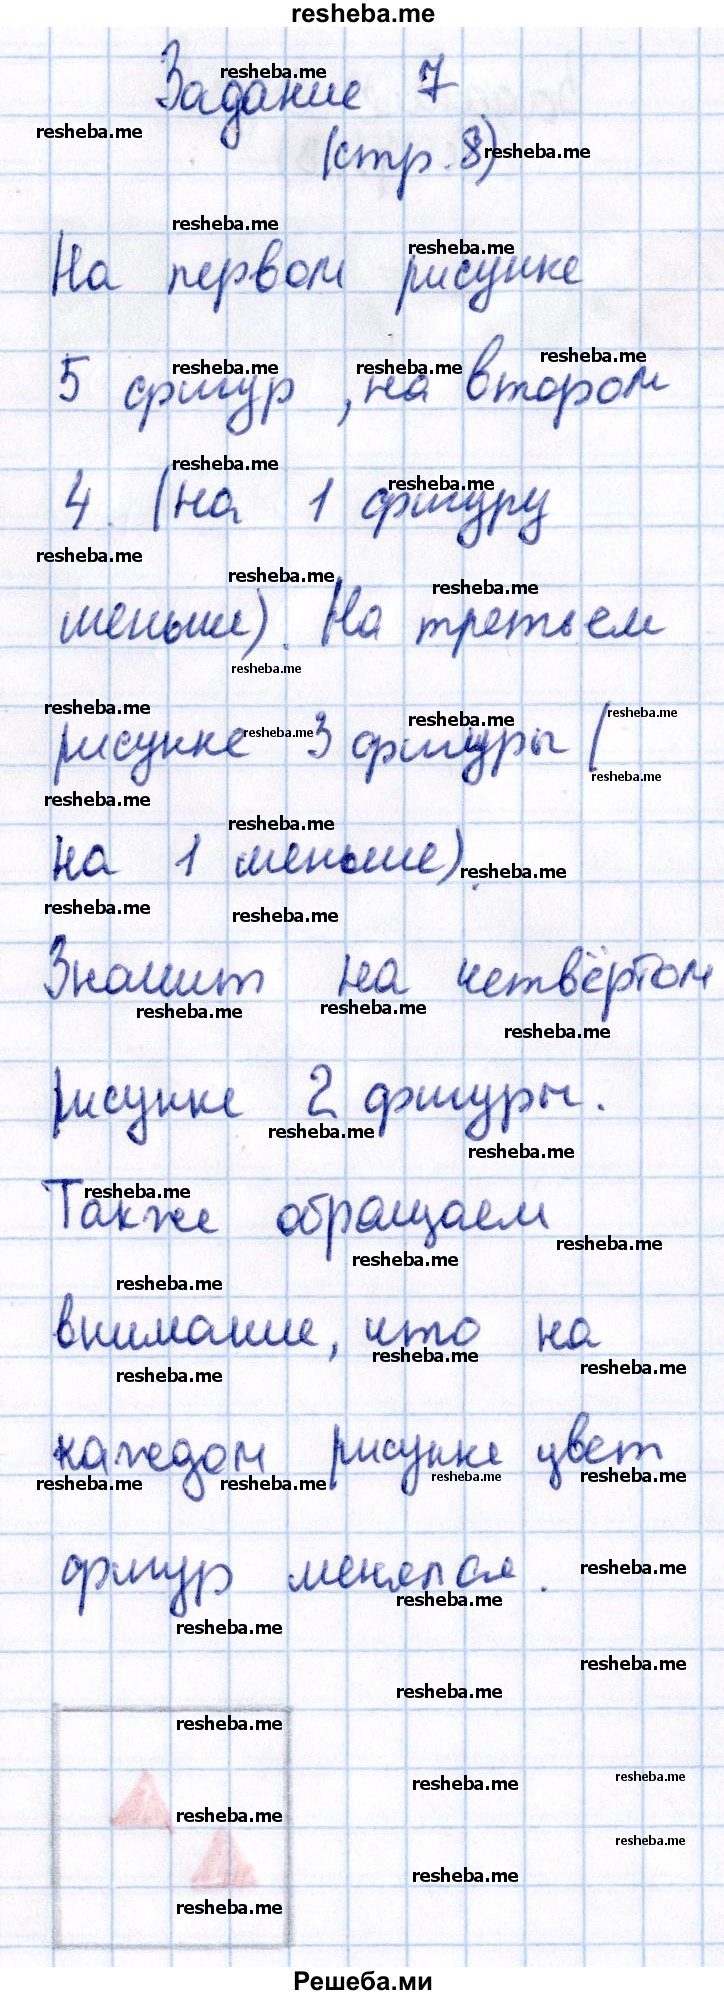 resheba.me
Задание 7
(стр. 8)
На первом рисунке
5 фигур, на втором
4. (на 1 фигуру
меньше). На третьем
рисунке 3 фигуры (
на 1 меньше).
Значит на четвёртом
рисунке 2 фигуры.
Также обращаем
внимание, что на
каждом рисунке цвет
фигур менялся.
Решеба.ми